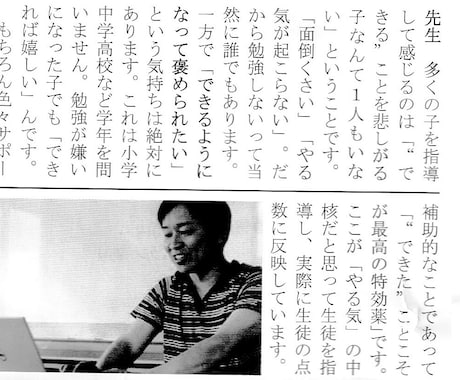 先生　多くの子を指導
して感じるのは「“で
きる”ことを悲しがる
子なんて１人もいな
い」ということです。
「面倒くさい」「やる
気が起こらない」。だ
から勉強しないって当
然に誰でもあります。
一方で「できるように
なって褒められたい」
という気持ちは絶対に
あります。これは小学
中学高校など学年を問
いません。勉強が嫌い
になった子でも「でき
れば嬉しい」んです。
もちろん色々サポー
補助的なことであって
「“できた”ことこそ
が最高の特効薬」です。
ここが「やる気」の中
核だと思って生徒を指
導し、実際に生徒の点
数に反映しています。